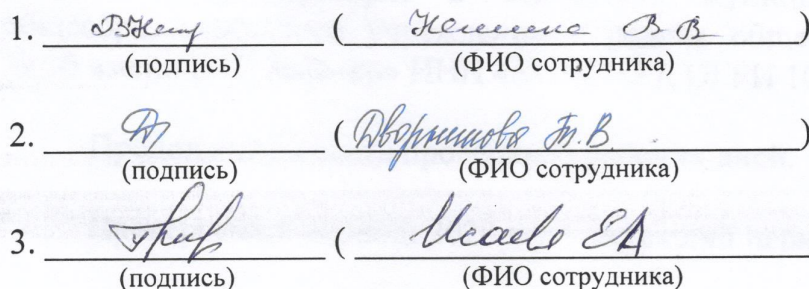 1. ВНем ( Немкина В В )
(подпись) (ФИО сотрудника)
2. ( Дворишкова Т.В. )
(подпись) (ФИО сотрудника)
3. ( Исаева ЕА )
(подпись) (ФИО сотрудника)